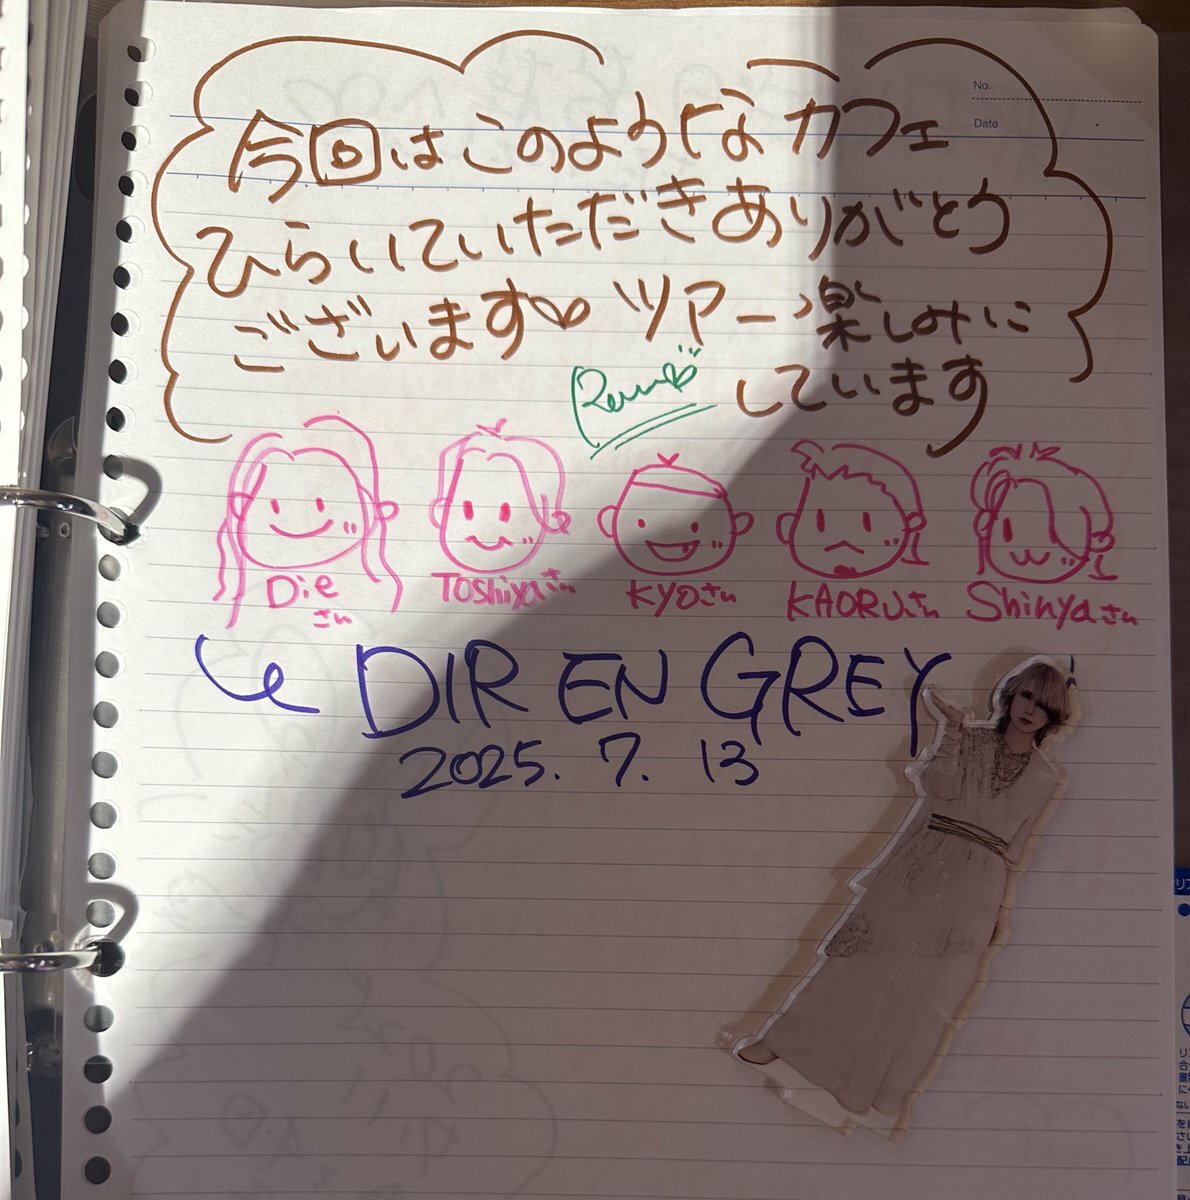 No.
Date
今回はこのようなカフェ
ひらいていただきありがとう
ございます♡ ツアー楽しみに
しています
Die さん
Toshiyaさん
Kyoさん
KAORUさん
Shinyaさん
DIR EN GREY
2025. 7. 13